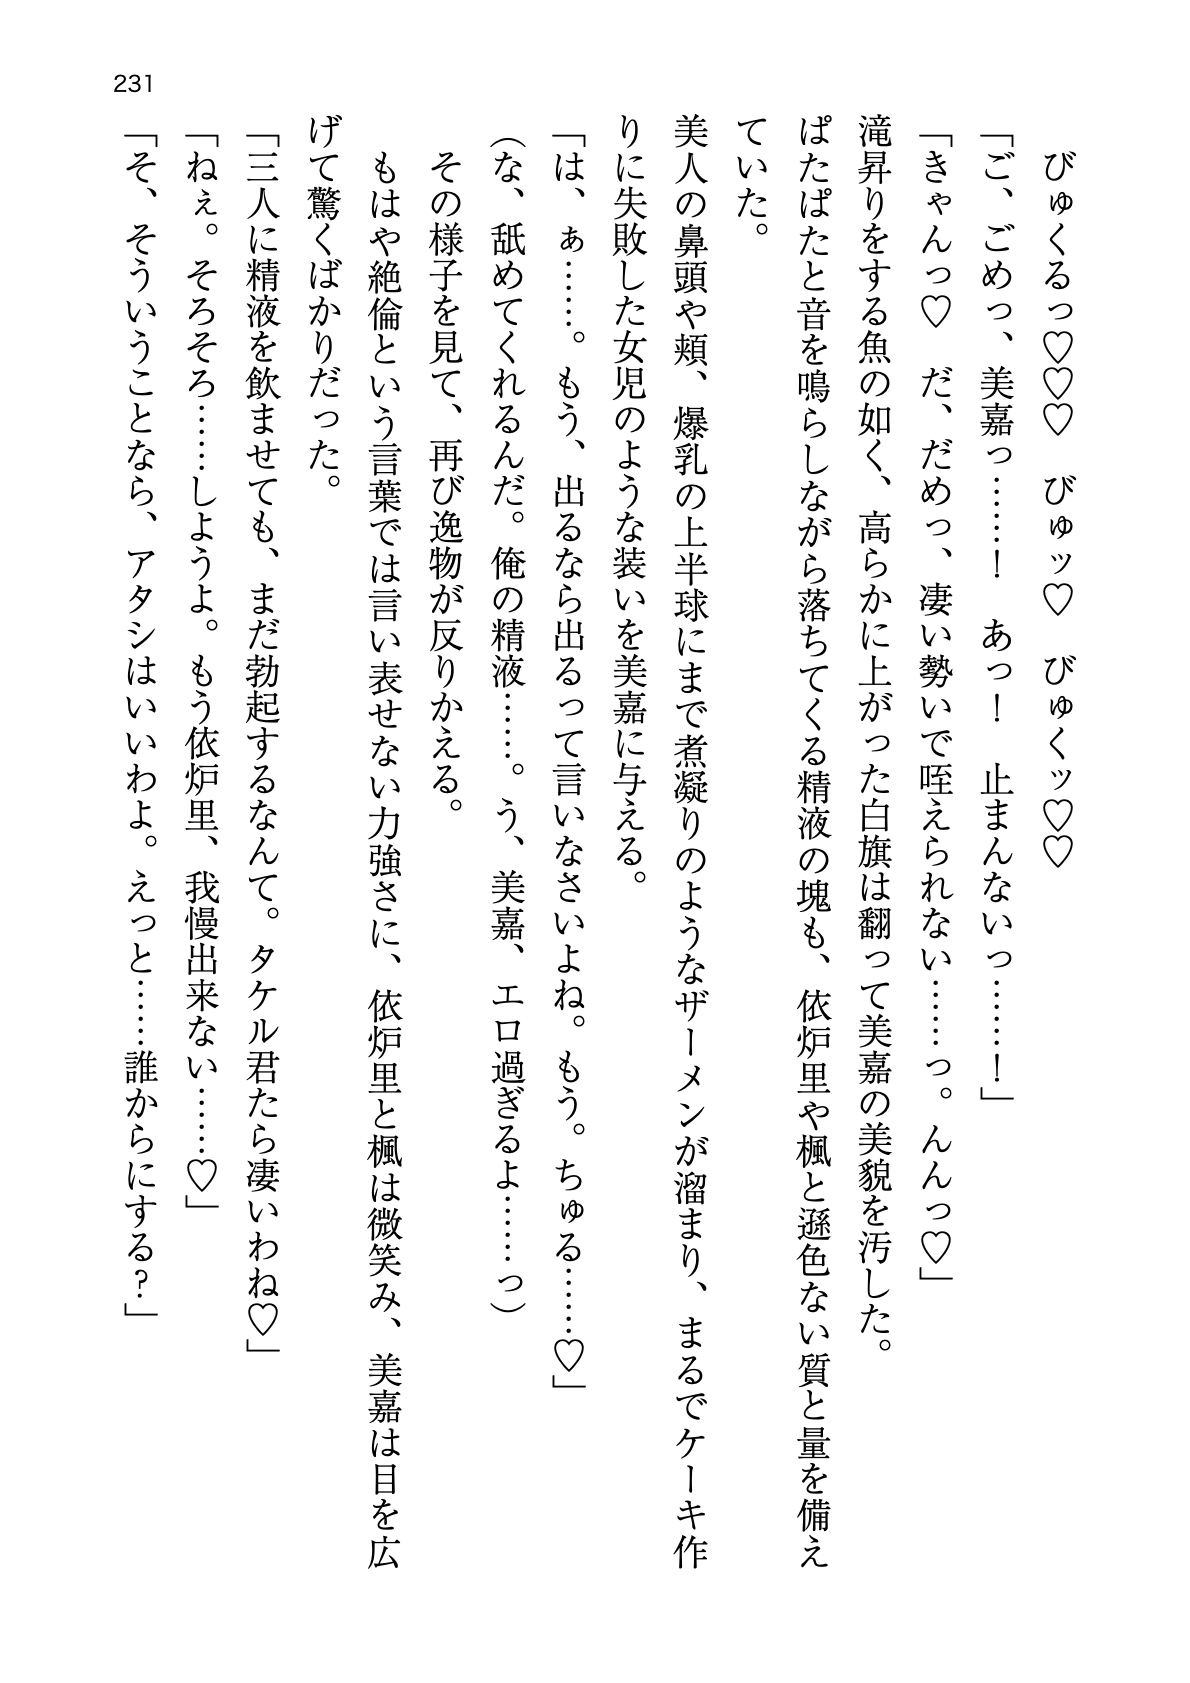 231
びゅくるっ♡♡♡　びゅッ♡　びゅくッ♡♡
「ご、ごめっ、美嘉っ……！　あっ！　止まんないっ……！」
「きゃんっ♡　だ、だめっ、凄い勢いで咥えられない……っ。んんっ♡」
滝昇りをする魚の如く、高らかに上がった白旗は翻って美嘉の美貌を汚した。
ぱたぱたと音を鳴らしながら落ちてくる精液の塊も、依炉里や楓と遜色ない質と量を備え
ていた。
美人の鼻頭や頬、爆乳の上半球にまで煮凝りのようなザーメンが溜まり、まるでケーキ作
りに失敗した女児のような装いを美嘉に与える。
「は、ぁ……。もう、出るなら出るって言いなさいよね。もう。ちゅる……♡」
（な、舐めてくれるんだ。俺の精液……。う、美嘉、エロ過ぎるよ……っ）
その様子を見て、再び逸物が反りかえる。
もはや絶倫という言葉では言い表せない力強さに、依炉里と楓は微笑み、美嘉は目を広
げて驚くばかりだった。
「三人に精液を飲ませても、まだ勃起するなんて。タケル君たら凄いわね♡」
「ねぇ。そろそろ……しようよ。もう依炉里、我慢出来ない……♡」
「そ、そういうことなら、アタシはいいわよ。えっと……誰からにする？」